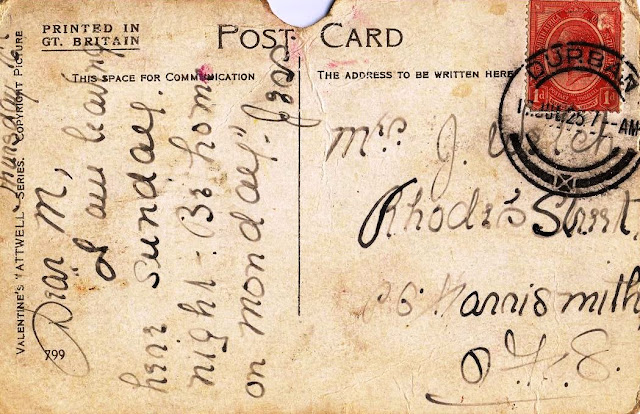 PRINTED IN
GT. BRITAIN
POST CARD
THIS SPACE FOR COMMUNICATION
THE ADDRESS TO BE WRITTEN HERE
VALENTINE'S "ATTWELL" SERIES. COPYRIGHT PICTURE
799
Thursday
Dear M,
I am leaving
here Sunday
night - Be home
on monday"
Mrs J.
Rhodes Street
Harrismith
O.F.S.
DURBAN
JUL 25
AM
1d 1d